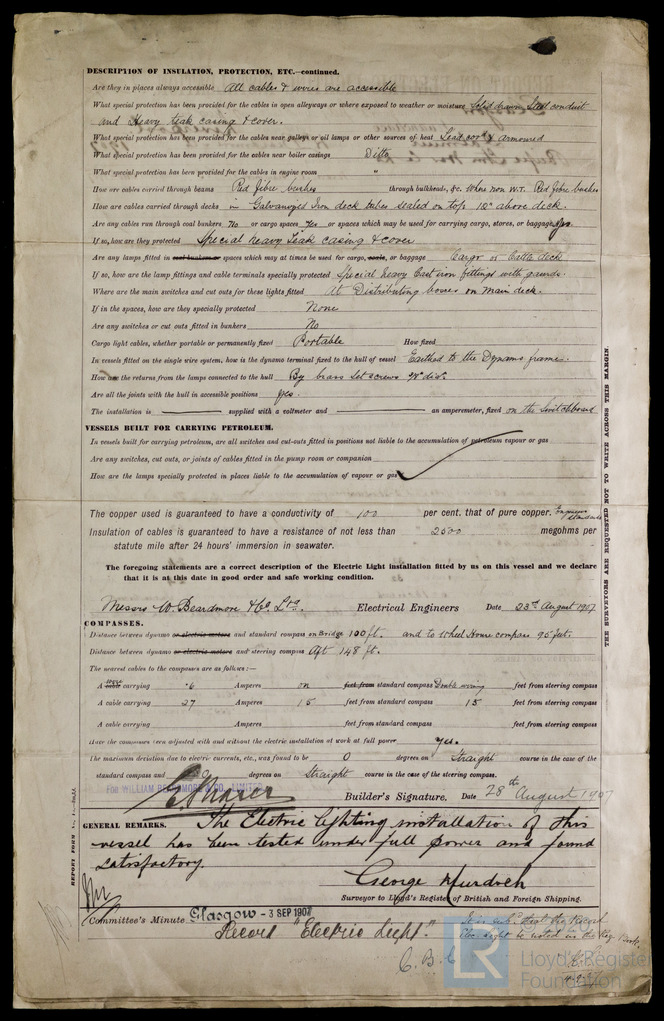 DESCRIPTION OF INSULATION, PROTECTION, ETC.—continued.
Are they in places always accessible All cables & wires are accessible
What special protection has been provided for the cables in open alleyways or where exposed to weather or moisture Solid drawn Steel conduit
and Heavy teak casing & cover.
What special protection has been provided for the cables near galleys or oil lamps or other sources of heat Lead cov'd & armoured
What special protection has been provided for the cables near boiler casings Ditto
What special protection has been provided for the cables in engine room "
How are cables carried through beams Red fibre bushes through bulkheads, &c. Where non W.T. Red fibre bushes
How are cables carried through decks in Galvanized Iron deck tubes sealed on top 12" above deck.
Are any cables run through coal bunkers No or cargo spaces Yes or spaces which may be used for carrying cargo, stores, or baggage Yes
If so, how are they protected Special heavy Teak casing & cover
Are any lamps fitted in coal bunkers or spaces which may at times be used for cargo, coals, or baggage Cargo or Cattle deck
If so, how are the lamp fittings and cable terminals specially protected Special heavy Cast iron fittings with guards.
Where are the main switches and cut outs for these lights fitted At Distributing boxes on main deck.
If in the spaces, how are they specially protected None
Are any switches or cut outs fitted in bunkers No
Cargo light cables, whether portable or permanently fixed Portable How fixed
In vessels fitted on the single wire system, how is the dynamo terminal fixed to the hull of vessel Earthed to the Dynamo frame.
How are the returns from the lamps connected to the hull By brass set screws
Are all the joints with the hull in accessible positions Yes.
The installation is supplied with a voltmeter and an amperemeter, fixed on the Switchboard
VESSELS BUILT FOR CARRYING PETROLEUM.
In vessels built for carrying petroleum, are all switches and cut-outs fitted in positions not liable to the accumulation of petroleum vapour or gas
Are any switches, cut outs, or joints of cables fitted in the pump room or companion
How are the lamps specially protected in places liable to the accumulation of vapour or gas
The copper used is guaranteed to have a conductivity of 100 per cent. that of pure copper.
Insulation of cables is guaranteed to have a resistance of not less than 2500 megohms per
statute mile after 24 hours' immersion in seawater.
The foregoing statements are a correct description of the Electric Light installation fitted by us on this vessel and we declare
that it is at this date in good order and safe working condition.
Messrs W. Beardmore & Co. Ltd. Electrical Engineers Date 23rd August 1907
COMPASSES.
Distance between dynamo or electric motors and standard compass on Bridge 100 ft. and to Wheel House compass 95 feet.
Distance between dynamo or electric motors and steering compass Aft 148 ft.
The nearest cables to the compasses are as follows:—
A carrying ·6 Amperes on feet from standard compass Double wiring feet from steering compass
A cable carrying 27 Amperes 15 feet from standard compass 15 feet from steering compass
A cable carrying Amperes feet from standard compass feet from steering compass
Have the compasses been adjusted with and without the electric installation at work at full power Yes.
The maximum deviation due to electric currents, etc., was found to be 0 degrees on Straight course in the case of the
standard compass and 0 degrees on Straight course in the case of the steering compass.
FOR WILLIAM BEARDMORE & CO. LIMITED
Builder's Signature. Date 28th August 1907
GENERAL REMARKS. The Electric lighting installation of this
vessel has been tested under full power and found
satisfactory.
George Murdoch
Surveyor to Lloyd's Register of British and Foreign Shipping.
Committee's Minute Glasgow - 3 SEP 1907
Record "Electric Light."
It is sub'd that the Record
Elec. Light be noted in the Reg. Book.
LR
Lloyd's Register
Foundation
THE SURVEYORS ARE REQUESTED NOT TO WRITE ACROSS THIS MARGIN.